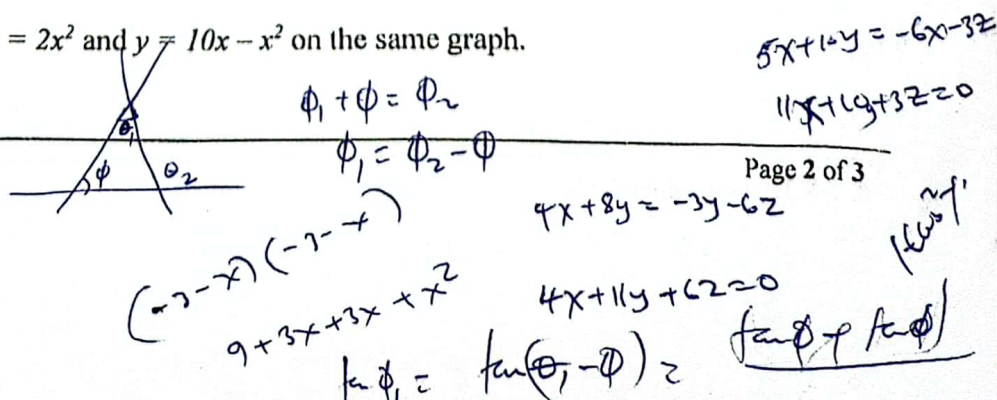 = 2x² and y = 10x – x² on the same graph.
5x+10y = -6x-3z
11x+10y+3z=0
ϕ₁ + ϕ = ϕ₂
ϕ₁ = ϕ₂ - ϕ
θ₁
ϕ
θ₂
Page 2 of 3
4x+8y = -3y-6z
(-3-x)(-3-x)
4x+11y+6z=0
9+3x+3x+x²
tan ϕ₁ = tan(θ₁-ϕ) =